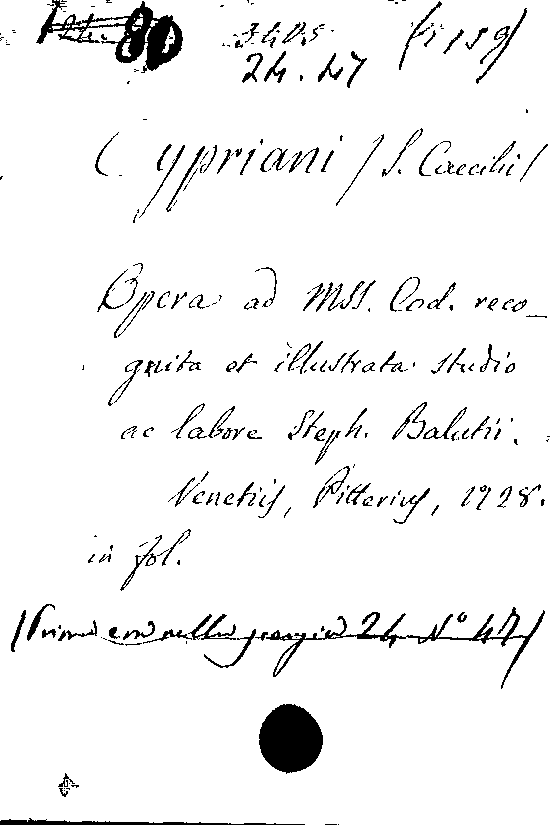 80 3405 (1159)
24.47
Cypriani / S. Caecilii /
Opera ad MSS. Cod. reco_
gnita et illustrata studio
ac labore Steph. Balutii.
Venetiis, Pitterius, 1728.
in fol.
(Prima era nella 24 N° 47)